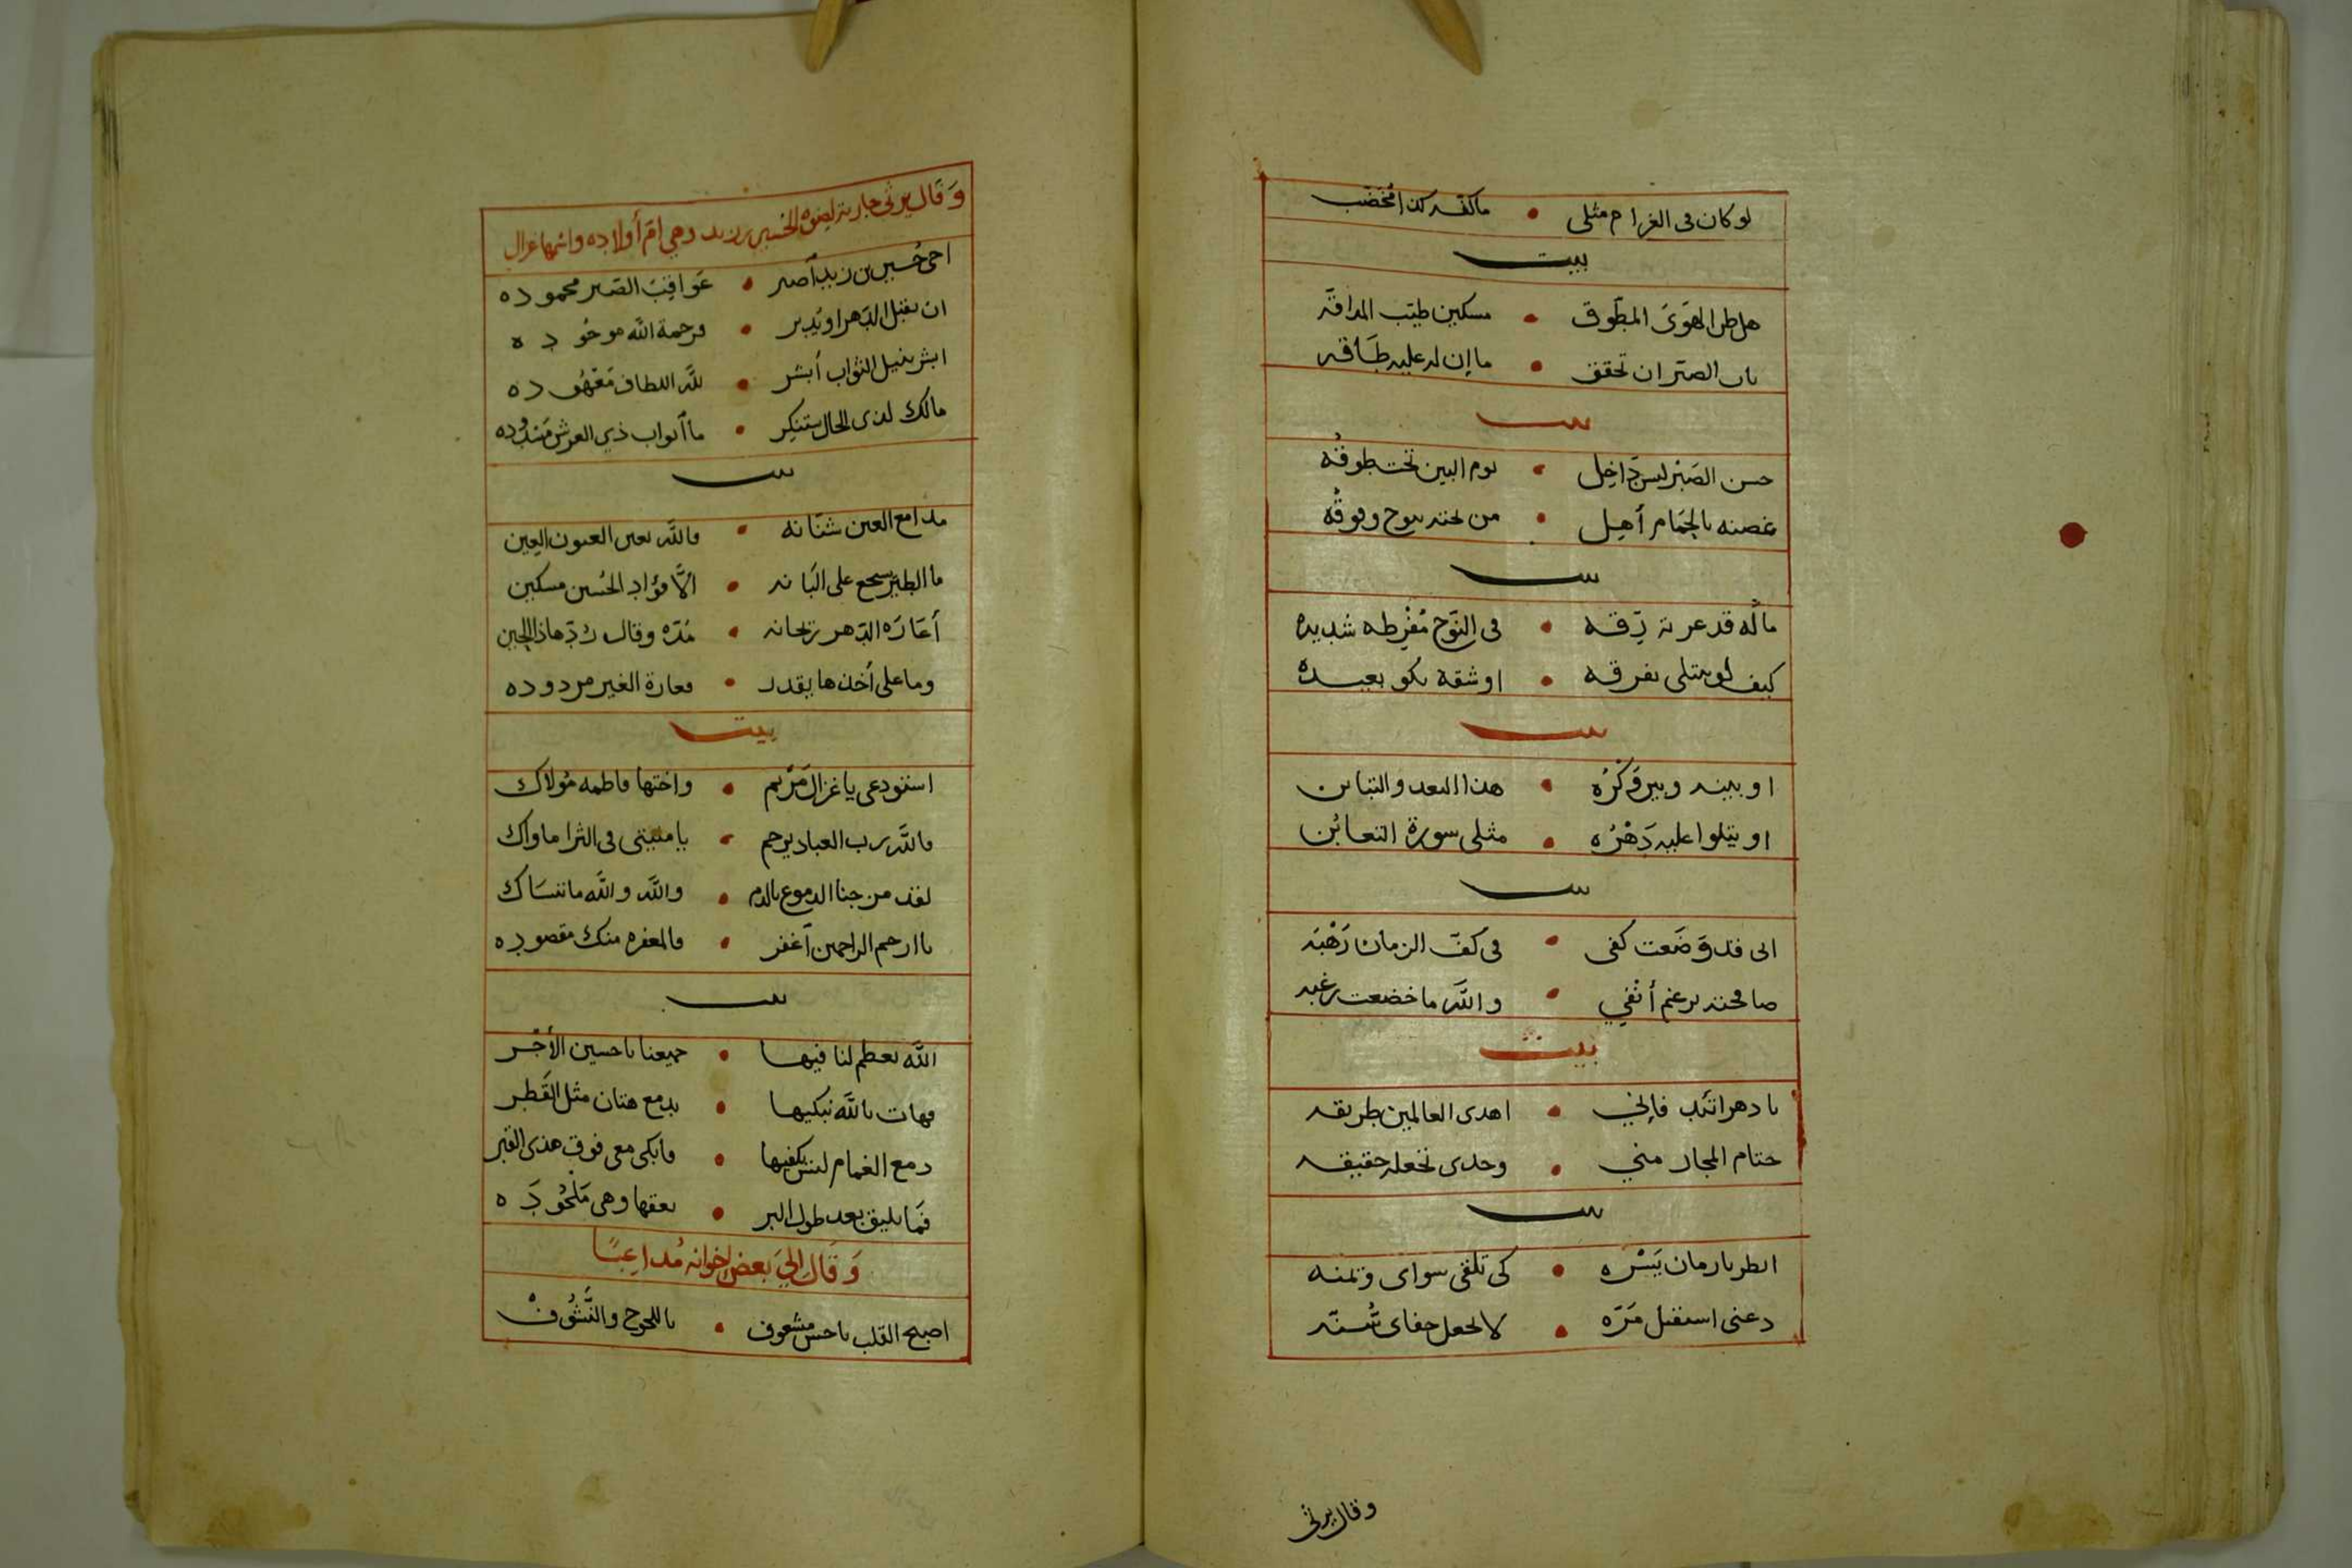 لو كان فى الغرام مثلى • ما كفه كذا مخضب
بيت
هل طن الهوى المطوق • مسكين طيب المداقه
بان الصبر ان تحقق • ما إن له عليه طاقه
بيت
حسن الصبر ليس داخل • يوم البين تحت طوقه
غصنه بالحمام أهل • من تحته ينوح وفوقه
بيت
ماله قد عرته رقه • فى النوح مفرطه شديده
كيف لو يبتلى بفرقه • او شقه تكو بعيده
بيت
او بينه وبين وكره • هذا البعد والتباين
او يتلوا عليه دهره • مثلى سورة التغابن
بيت
انى قد وضعت كفى • فى كف الزمان رهبه
صافحته برغم أنفي • والله ما خضعت رغبه
بيت
يا دهر اتئد فإنني • اهدى العالمين طريقه
حتام المجاز منى • وحدى تجعله حقيقه
بيت
انظر يا زمان يسره • كى تلقى سواى وتمنه
دعنى استقبل مره • لا تجعل جفاى سنه
وقال يرثى
وقال يرثى جارية لصنوه الحسين بن زيد وهي ام أولاده واسمها غزال
اخى حسين بن زيد أصبر • عواقب الصبر محموده
ان يقبل الدهر او يدبر • فرحمة الله موجوده
ابشر بنيل الثواب أبشر • لله الطاف معهوده
مالك لذى الحال تستنكر • ما أبواب ذي العرش مسدوده
بيت
مدامع العين شتانه • فالله يعين العيون العين
ما الطير يسجع على البانه • الا فؤاد الحسين مسكين
أعاره الدهر ريحانه • مده وقال رد هاذا الحين
وما على أخذها يقدر • فعارة الغير مردوده
بيت
استودعى يا غزال مريم • واختها فاطمه مولاك
فالله رب العباد يرحم • يا منيتى فى الثرا ماواك
لقد مزجنا الدموع بالدم • والله والله ما ننساك
يا ارحم الراحمين أغفر • فالمغفره منك مقصوده
بيت
الله يعظم لنا فيها • جميعنا يا حسين الأجر
فهات بالله نبكيها • بدمع هتان مثل القطر
دمع الغمام ليس يكفيها • فابكى معى فوق هذى القبر
فما يليق بعد طول البر • نعقها وهى ملحوده
وقال إلى بعض إخوانه مداعبا
اصبح القلب يا حسن مشعوف • باللحوح والنشوف